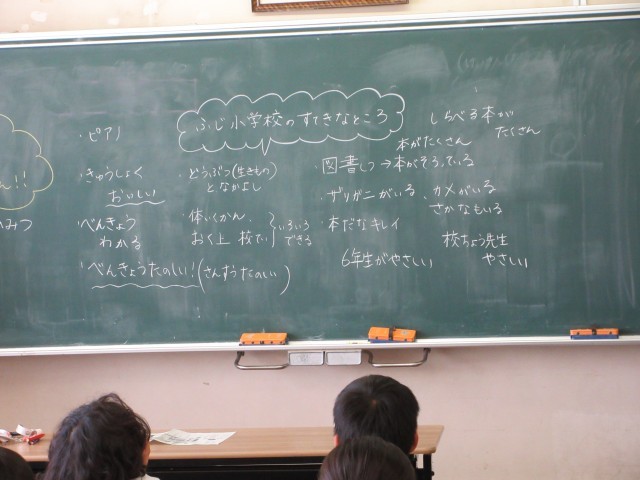 ふじ小学校のすてきなところ
ん!!
みつ
・ピアノ
・きゅうしょく
おいしい
・べんきょう
わかる
・べんきょうたのしい!(さんすうたのしい)
・どうぶつ(生きもの)
となかよし
・体いくかん、
おく上 校てい
いろいろ
できる
しらべる本が
たくさん
本がたくさん
図書しつ→本がそろっている
・ザリガニがいる、カメがいる
さかなもいる
本だなキレイ
6年生がやさしい
校ちょう先生
やさしい